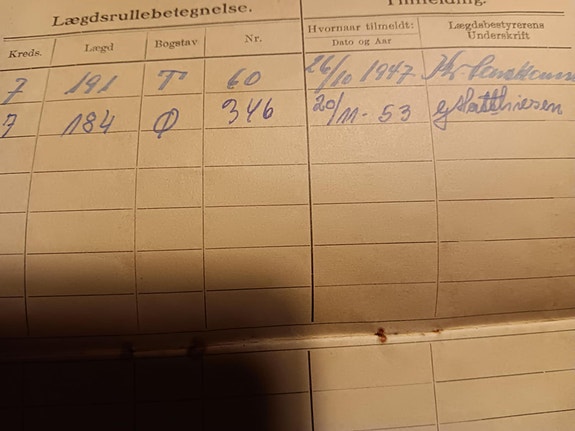 Lægdsrullebetegnelse. Tilmelding.
Kreds. Lægd Bogstav Nr. Hvornaar tilmeldt: Dato og Aar Lægdsbestyrerens Underskrift
7 191 T 60 26/10 1947
7 184 Ø 346 20/11-53 Matthiesen